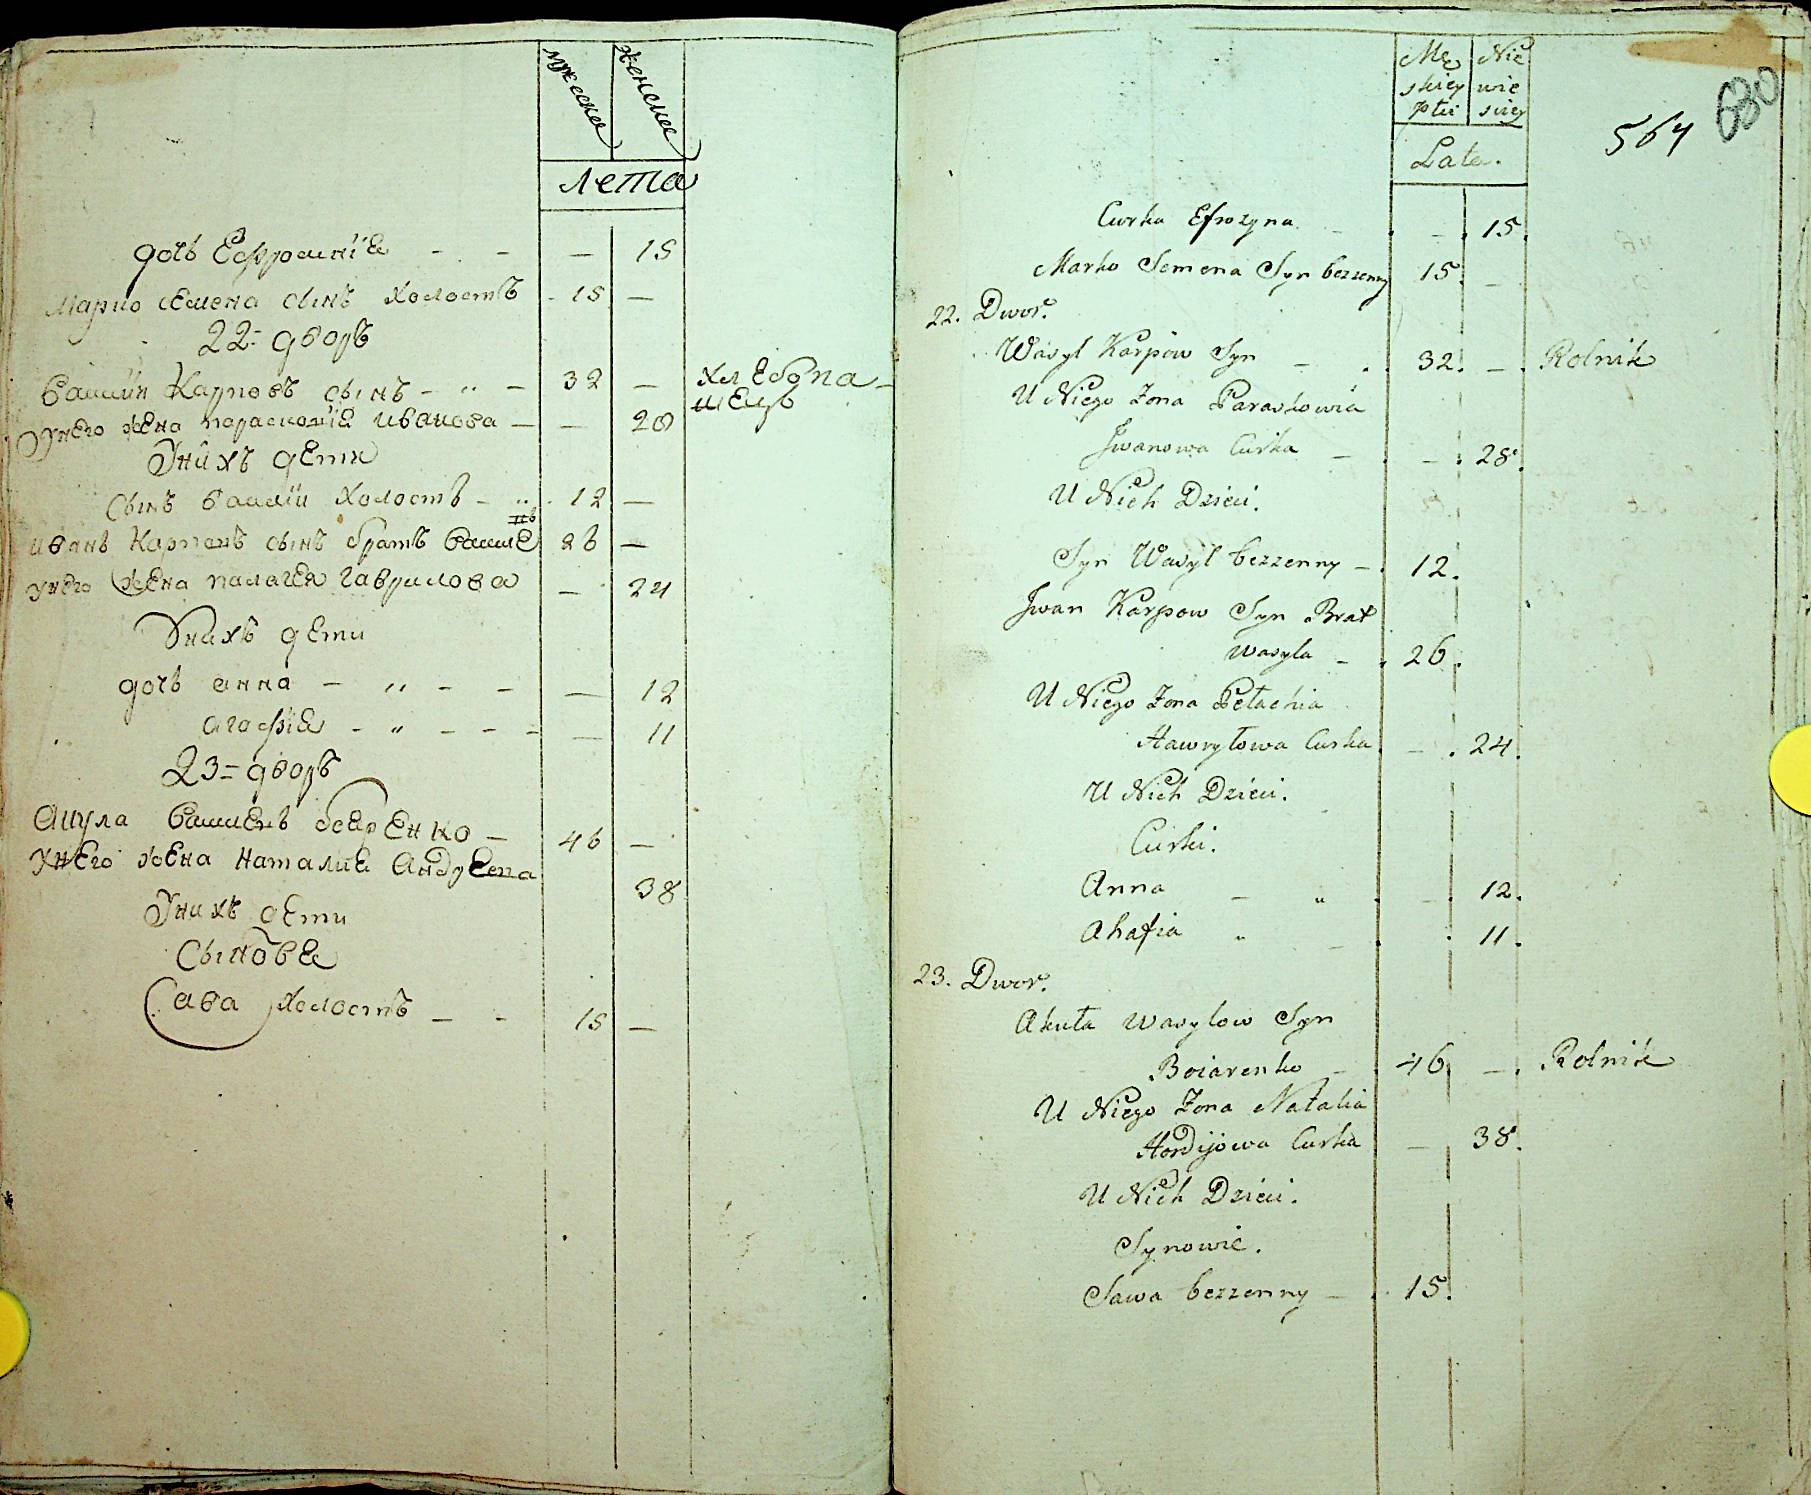 мужеска
женска
лета
дочь Ефросиния - - — 15
Марко Семена сынъ холостъ - 15 —
22 = дворъ
Василий Карповъ сынъ - „ - 32 — хлебопа-
шецъ
Унего жена параскопие иванова — — 28
Унихъ дети
Сынъ Василий холостъ - „ - 12 —
иванъ Карповъ сынъ братъ Василе 26 —
унего жена палагея гаврилова — 24
Унихъ дети
дочь анна - „ - - — 12
агафие - „ - - - — 11
23 = дворъ
Акула Василевъ боеренко — 46 —
унего жена Наталие
38
Унихъ дети
Сыновее
Сава холостъ - - 15 —
Mę Nie
skiey wie
płci skiey
Lata.
564
680
Curka Efrozyna - - . 15.
Marko Semena Syn bezzenny 15. -
22. Dwor.
Wasyl Karpow Syn - . 32. - . Rolnik
U Niego Zona Paraskowia
Jwanowa Curka - - . 28.
U Nich Dzieci.
Syn Wasyl bezzenny - . 12.
Jwan Karpow Syn Brat
Wasyla - . 26.
U Niego Zona Pełachia
Hawryłowa Curka - . 24.
U Nich Dzieci.
Curki.
Anna - „ . - . 12.
Ahafia „ - . . 11.
23. Dwor.
Akuła Wasylow Syn
Boiarenko - 46. - . Rolnik
U Niego Zona Natalia
Hordijowa Curka - 38.
U Nich Dzieci.
Synowie.
Sawa bezzenny - . 15.